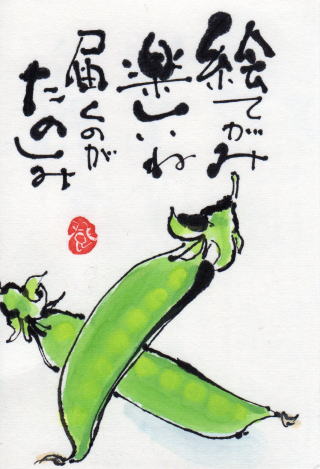 絵てがみ
楽しいね
届くのが
たのしみ